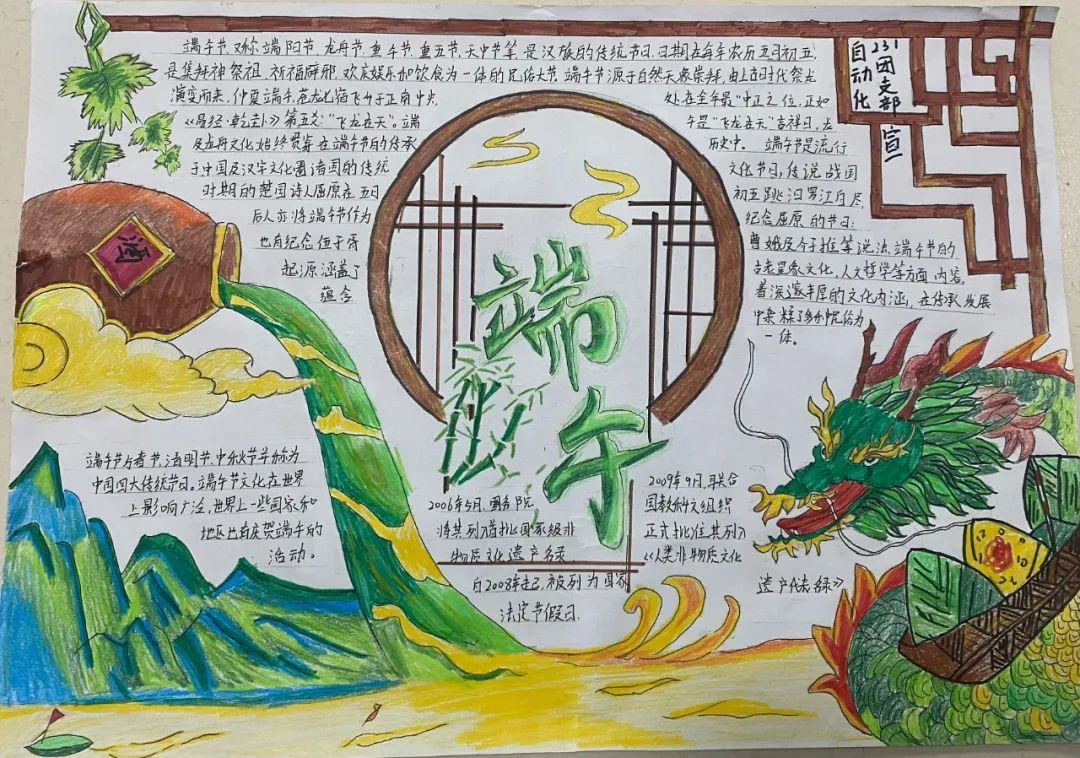 端午节,又称端阳节、龙舟节、重午节、重五节、天中节等,是汉族的传统节日,日期在每年农历五月初五,
是集拜神祭祖、祈福辟邪、欢庆娱乐和饮食为一体的民俗大节。端午节源于自然天象崇拜,由上古时代祭龙
演变而来。仲夏端午,苍龙七宿飞升于正南中央,
处在全年最“中正”之位,正如
《易经·乾卦》第五爻:“飞龙在天”。端
午是“飞龙在天”吉祥日,龙
及龙舟文化始终贯穿在端午节的传承
历史中。 端午节是流行
于中国及汉字文化圈诸国的传统
文化节日,传说战国
时期的楚国诗人屈原在五月
初五跳汨罗江自尽,
后人亦将端午节作为
纪念屈原的节日;
也有纪念伍子胥
曹娥及介子推等说法。端午节的
起源涵盖了
古老星象文化、人文哲学等方面内容,
蕴含
着深邃丰厚的文化内涵,在传承发展
中杂糅了多种民俗为
一体。
自动化
231团支部
宣
酒
端午
端午节与春节、清明节、中秋节并称为
中国四大传统节日。端午节文化在世界
上影响广泛,世界上一些国家和
地区也有庆贺端午的
活动。
2006年5月,国务院
将其列入首批国家级非
物质文化遗产名录
自2008年起,被列为国家
法定节假日.
2009年9月,联合
国教科文组织
正式批准其列入
《人类非物质文化
遗产代表名录》